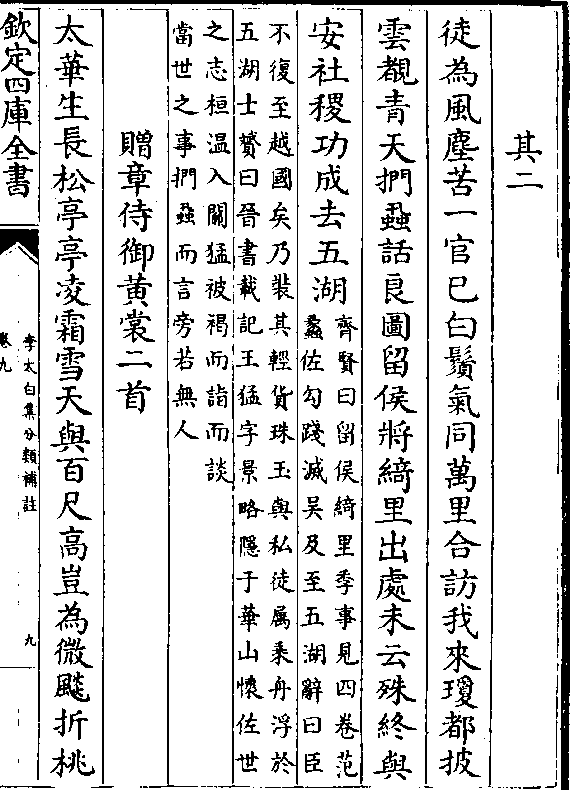 其二
徒為風塵苦一官巳白鬚氣同萬里合訪我來瓊都披
雲覩青天捫蝨話良圖留侯將綺里出處未云殊終與
安社稷功成去五湖
齊賢曰留侯綺里季事見四卷范
蠡佐勾踐滅吳及至五湖辭曰臣
不復至越國矣乃裝其輕貨珠玉與私徒屬乘舟浮於
五湖士贇曰晉書載記王猛字景略隱于華山懷佐世
之志桓温入關猛被褐而詣而談
當世之事捫蝨而言旁若無人
贈章侍御黃裳二首
太華生長松亭亭凌霜雪天與百尺高豈為微飈折桃
欽定四庫全書
李太白集分類補註
卷九
九